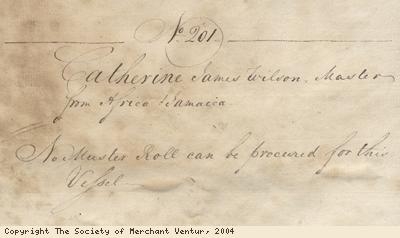 No. 201.
Catherine James Wilson. Master
from Africa & Jamaica
No Muster Roll can be procured for this
Vessel
Copyright The Society of Merchant Ventur, 2004